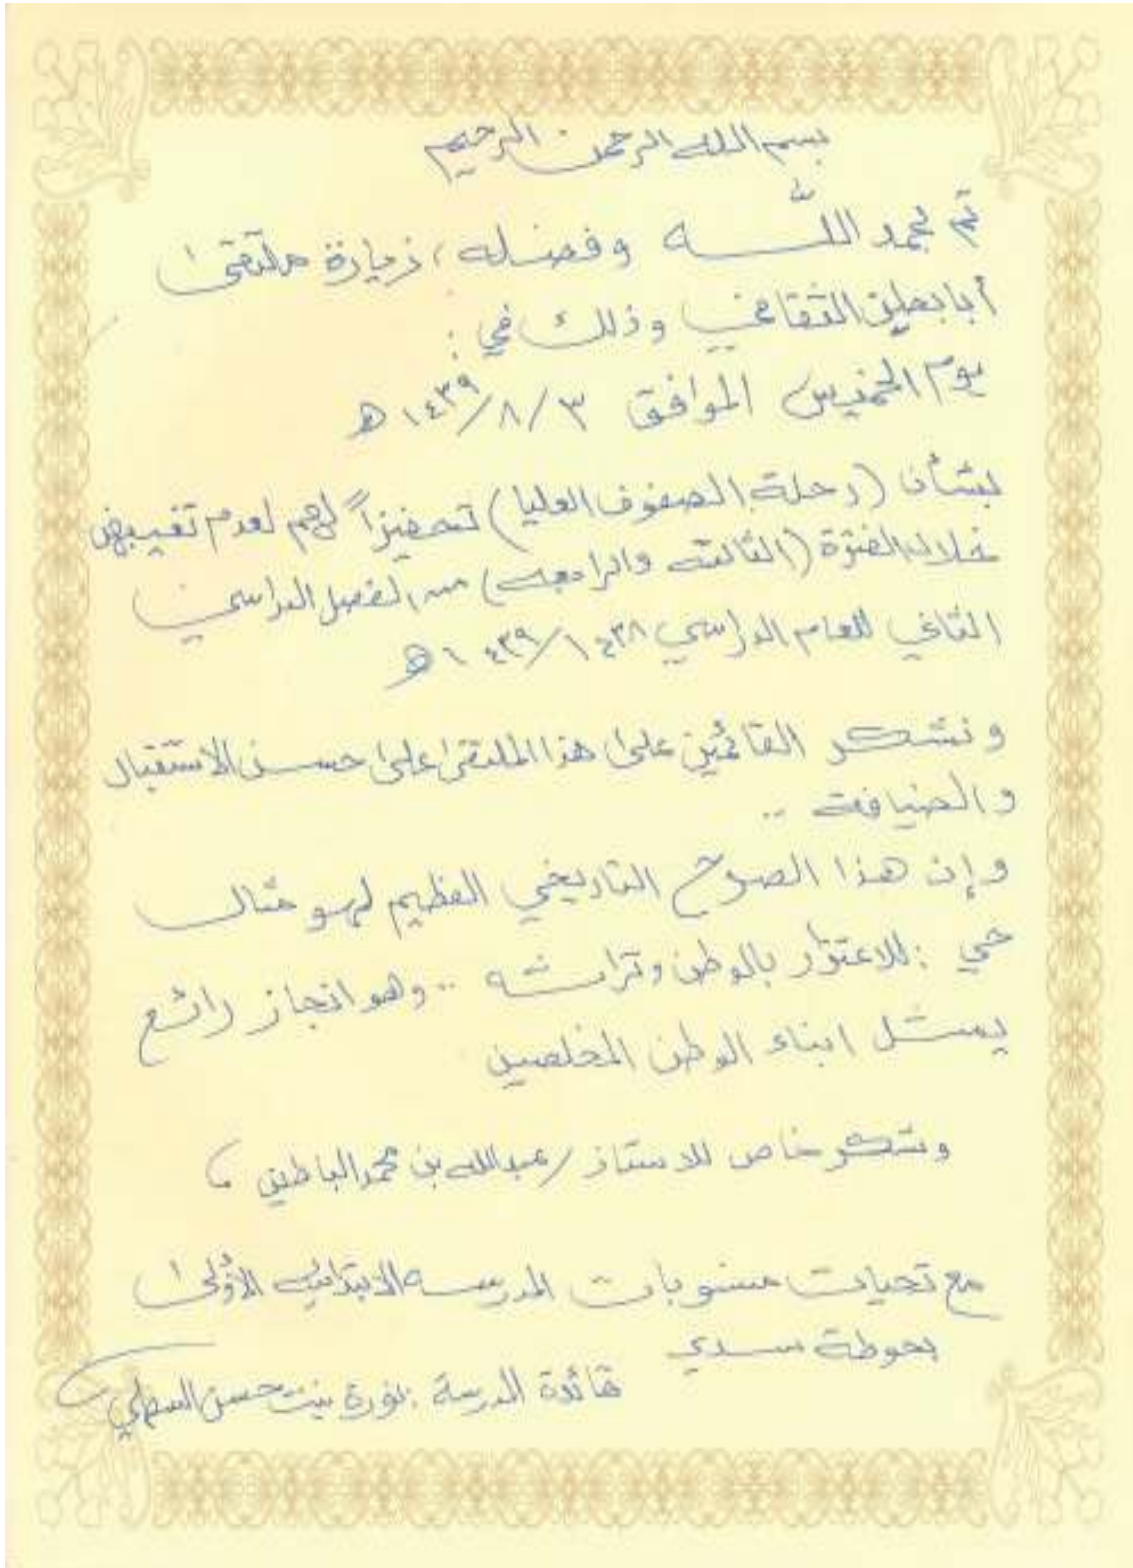 بسم الله الرحمن الرحيم
تم بحمد اللـــه وفضله، زيارة ملتقى
أبابطين الثقافي وذلك في :
يوم الخميس الموافق ٣/٨/١٤٣٩ هـ
بشأن (رحلة الصفوف العليا) تحفيزاً لهم لعدم تغيبهن
خلال الفترة (الثالثه والرابعه) من الفصل الدراسي
الثاني للعام الدراسي ١٤٣٨/١٤٣٩ هـ
ونشكر القائمين على هذا الملتقى على حسن الاستقبال
والضيافة ..
وإن هذا الصرح التاريخي العظيم لهو مثال
حي : للاعتزاز بالوطن وتراثه .. وهو انجاز رائع
يمثل ابناء الوطن المخلصين
وشكر خاص للاستاذ / عبدالله بن محمد البابطين ،
مع تحيات منسوبات المدرسه الابتدائيه الأولى
بحوطة سدير
قائدة المدرسة : نورة بنت حسن